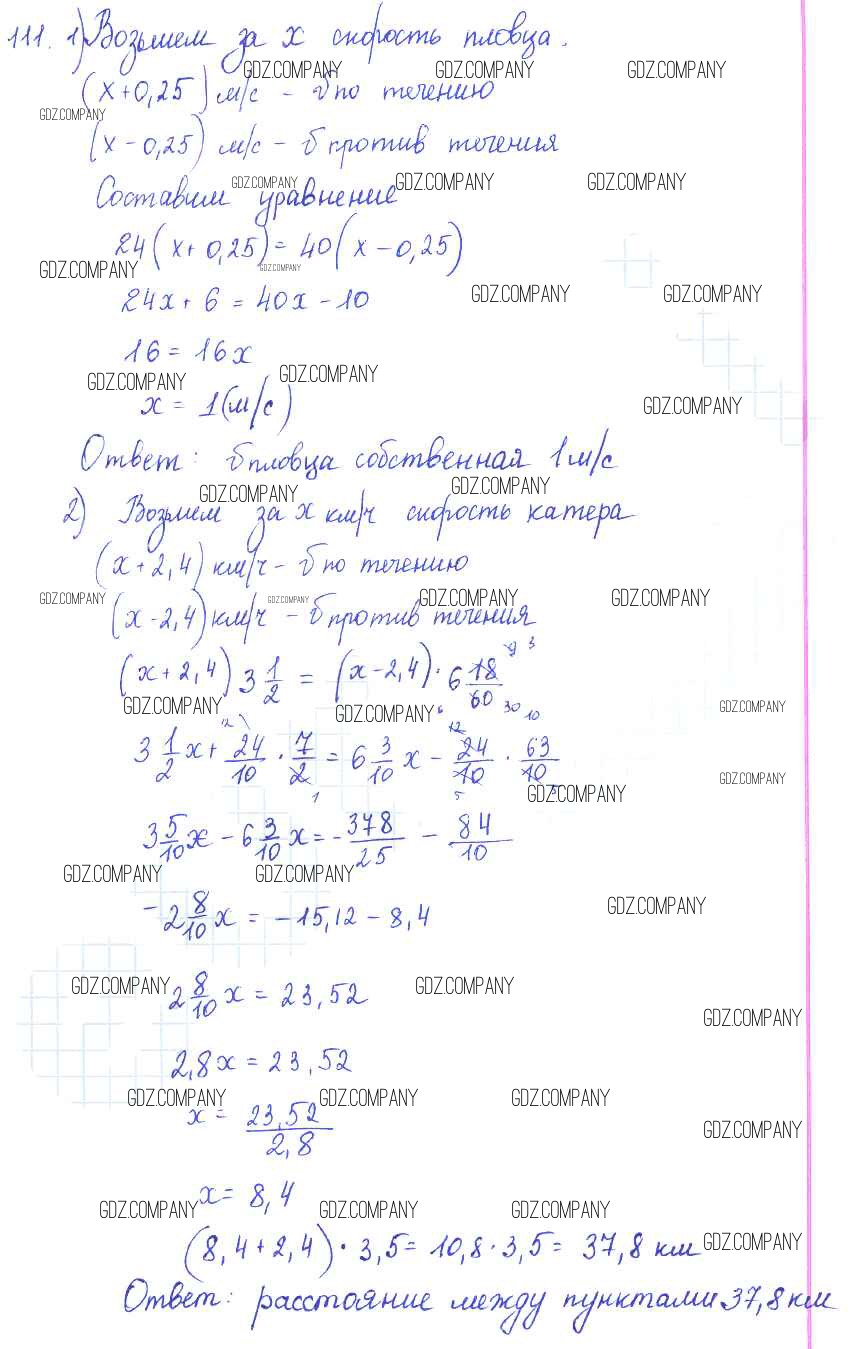 111. 1) Возьмем за x скорость пловца.
GDZ.COMPANY GDZ.COMPANY GDZ.COMPANY
(x+0,25) м/с - υ по течению
GDZ.COMPANY
(x-0,25) м/с - υ против течения
GDZ.COMPANY GDZ.COMPANY GDZ.COMPANY
Составим уравнение
24(x+0,25)=40(x-0,25)
GDZ.COMPANY GDZ.COMPANY
24x+6=40x-10
GDZ.COMPANY GDZ.COMPANY
16=16x
GDZ.COMPANY GDZ.COMPANY
x=1(м/с)
GDZ.COMPANY
Ответ: υ пловца собственная 1м/с
GDZ.COMPANY GDZ.COMPANY
2) Возьмем за x км/ч скорость катера
(x+2,4) км/ч - υ по течению
GDZ.COMPANY GDZ.COMPANY GDZ.COMPANY GDZ.COMPANY
(x-2,4) км/ч - υ против течения
(x+2,4) 3 1/2 = (x-2,4)·6 18/60 9 3 30 10
GDZ.COMPANY GDZ.COMPANY GDZ.COMPANY
3 1/2 x + 24/10 · 7/2 = 6 3/10 x - 24/10 · 63/10 12 1 12 5
GDZ.COMPANY
GDZ.COMPANY
3 5/10 x - 6 3/10 x = - 378/25 - 84/10
GDZ.COMPANY GDZ.COMPANY
-2 8/10 x = -15,12 - 8,4
GDZ.COMPANY
2 8/10 x = 23,52
GDZ.COMPANY GDZ.COMPANY
GDZ.COMPANY
2,8x = 23,52
GDZ.COMPANY GDZ.COMPANY GDZ.COMPANY
x = 23,52/2,8
GDZ.COMPANY
x = 8,4
GDZ.COMPANY GDZ.COMPANY GDZ.COMPANY
(8,4+2,4)·3,5=10,8·3,5=37,8 км
GDZ.COMPANY
Ответ: расстояние между пунктами 37,8 км